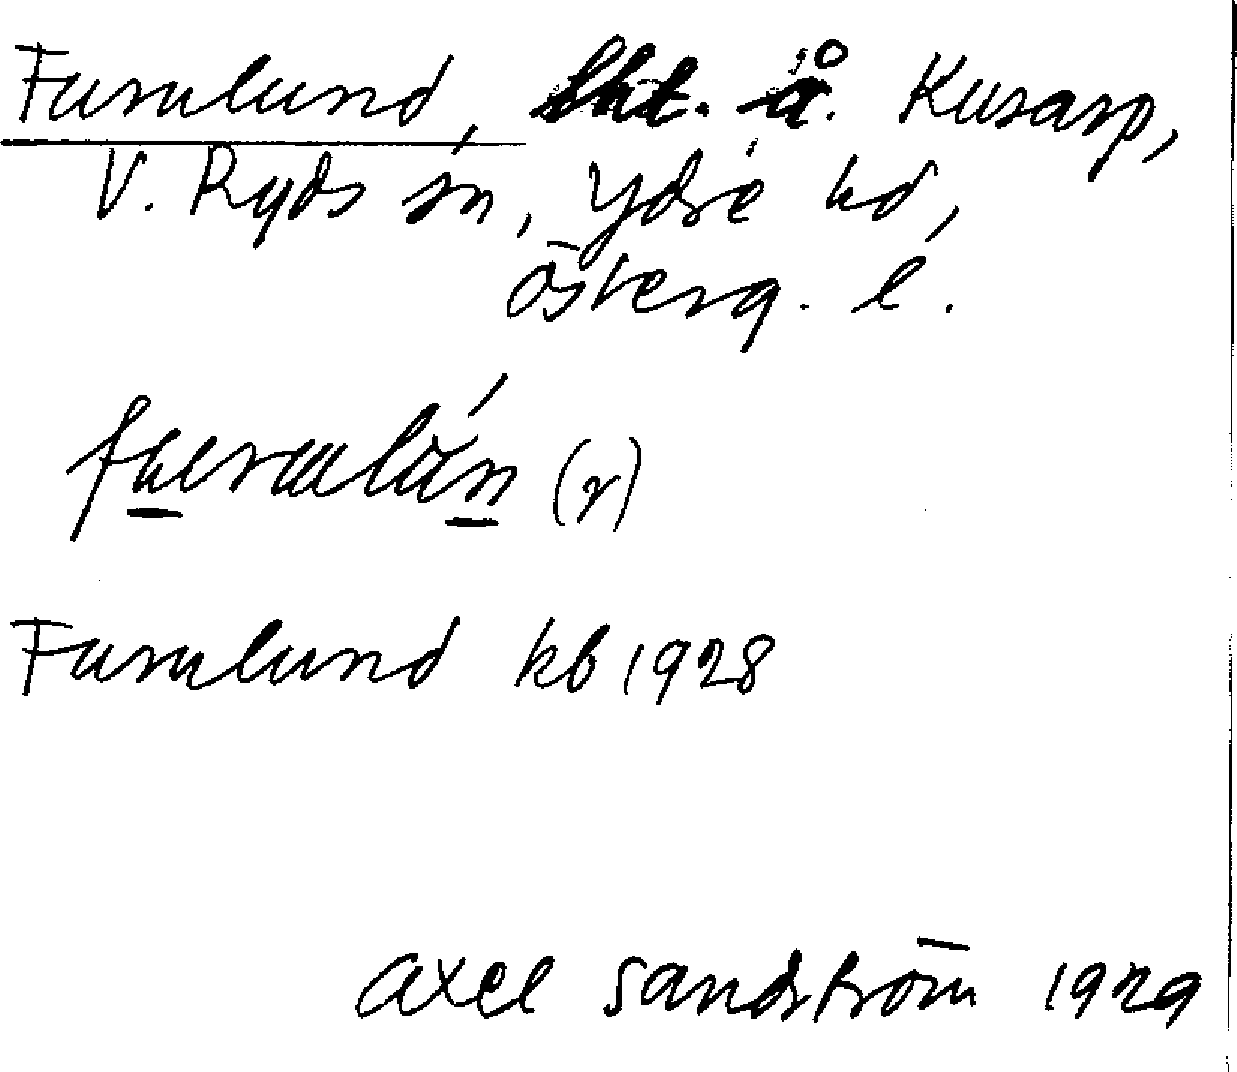 Furulund, lht. å. Kusarp,
V. Ryds sn, Ydre hd,
Österg. l.
(r)
Furulund kb 1928
Axel Sandström 1929